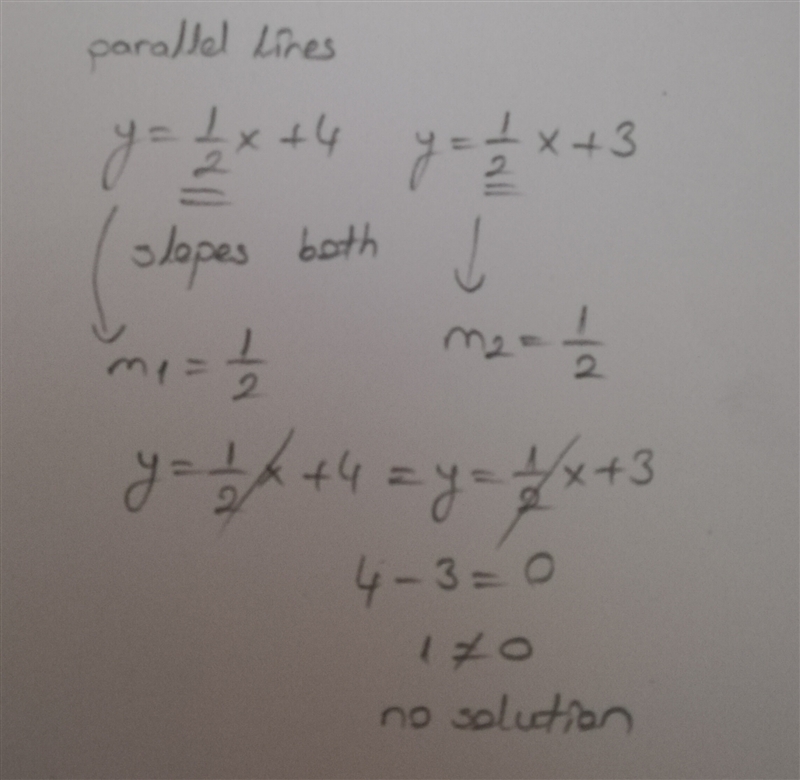 parallel lines
y = 1/2 x + 4    y = 1/2 x + 3
slopes both
m1 = 1/2    m2 = 1/2
y = 1/2 x + 4 = y = 1/2 x + 3
4 - 3 = 0
1 ≠ 0
no solution